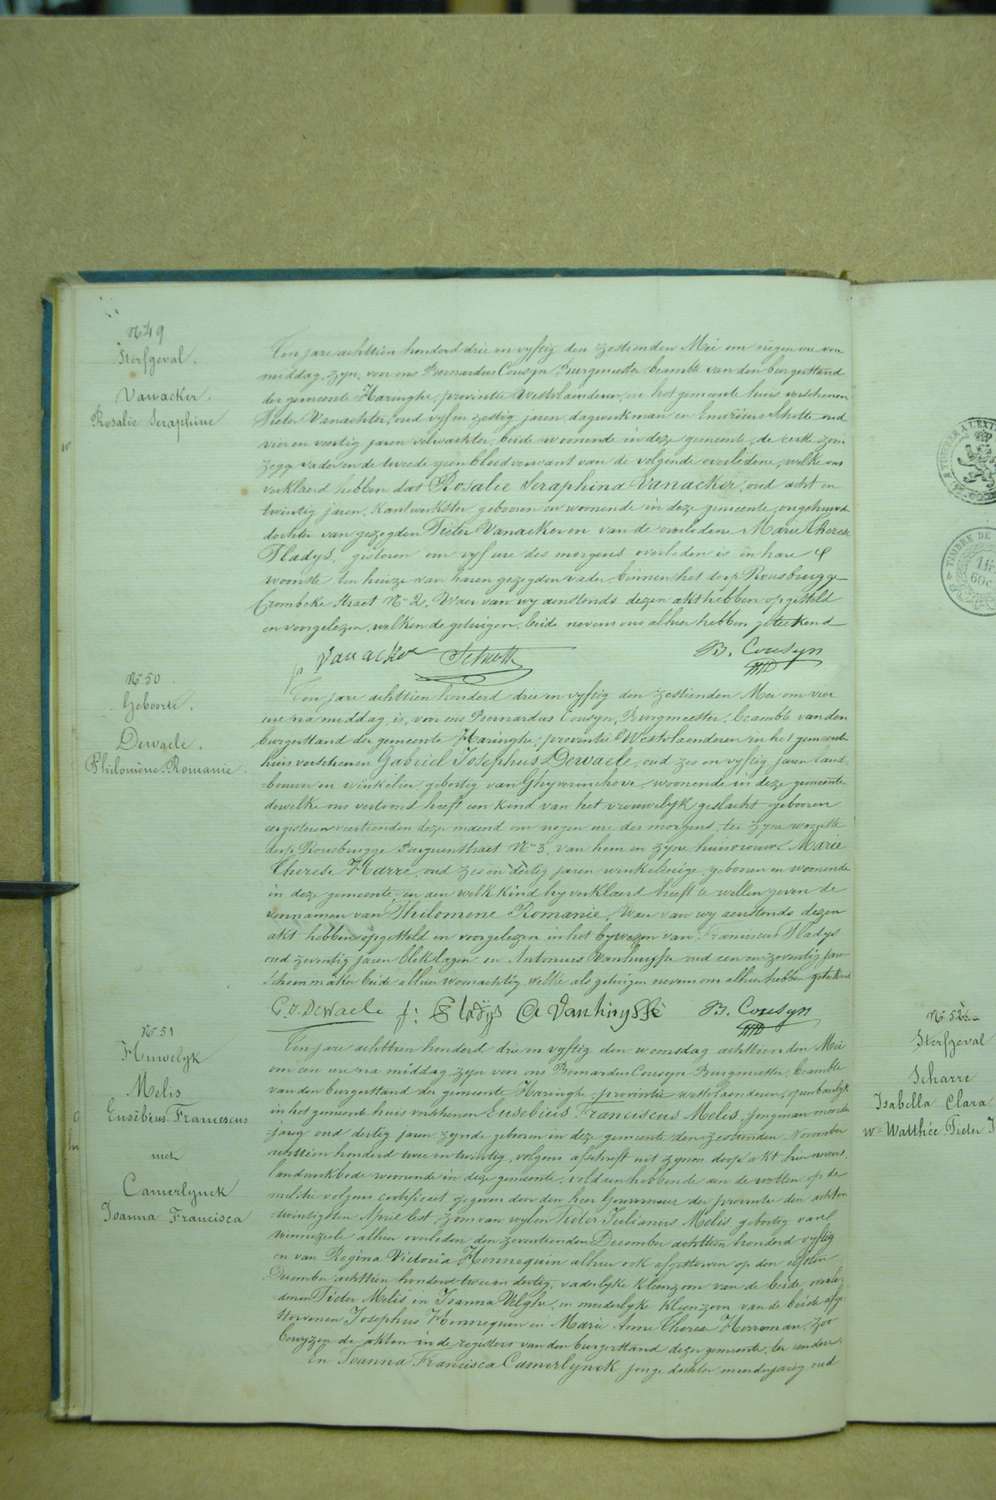 N° 49
Sterfgeval.
Vanacker.
Rosalie Seraphine
Ten jare achttien honderd drie en vyftig den zestienden Mei om negen ure voor
middag, zyn, voor ons Bernardus Cousyn, Burgmeester beambte van den burgerstand
der gemeente Haringhe, provintie Westvlaenderen, in het gemeente huis verschenen
Pieter Vanackter, oud vyf en zestig jaren dagwerkman en Schotte, oud
vier en veertig jaren veldwachter, beide woonende in deze gemeente, de eerste zoo
zegge vader en de tweede geen bloedverwant van de volgende overledene, welke ons
verklaerd hebben dat Rosalie Seraphina Vanacker, oud acht en
twintig jaren, kantwerkster, geboren en woonende in deze gemeente, ongehuwde
dochter van gezegden Pieter Vanacker en van de overledene Marie Therese
Pladys, gisteren om vyf ure des morgens overleden is in hare
woonste ten huize van haren gezegden vader binnen het dorp Rousbrugge
Crombeke straet N° 2. Waer van wy aenstonds dezen akt hebben opgesteld
en voorgelezen, welken de getuigen beide nevens ons alhier hebben geteekend
P. Vanacker Schotte B. Cousyn
N° 50.
Geboorte.
Dewaele.
Philomène-Romanie.
Ten jare achttien honderd drie en vyftig den zestienden Mei om vier
ure na middag is, voor ons Bernardus Cousyn, Burgmeester, beambte van den
burgerstand der gemeente Haringhe, provintie Westvlaenderen in het gemeente
huis verschenen Gabriel Josephus Dewaele, oud zes en vyftig jaren land
bouwer en winkelier geboortig van Ghyverinchove, woonende in deze gemeente
dewelke ons vertoond heeft een kind van het vrouwelyk geslacht geboren
eergisteren veertienden dezer maend om negen ure des morgens, te zyne woonste
dorp Rousbrugge straet N° 3, van hem en zyne huisvrouw Marie
Therese Harre, oud zes en dertig jaren winkelierige geboren en woonende
in deze gemeente, en aen welk kind hy verklaerd heeft te willen geven de
voornamen van Philomene Romanie. Waer van wy aenstonds dezen
akt hebben opgesteld en voorgelezen in het bywezen van Franciscus Pladys
oud zeventig jaren en Antonius Vanhuysse oud een en zeventig jaren
schoenmaker beide alhier woonachtig, welke als getuigen nevens ons alhier hebben geteekend
G. J. Dewaele f: Pladys A Vanhuysse B. Cousyn
N° 51
Huwelyk
Melis
Eusebius Franciscus
met
Camerlynck
Joanna Francisca
Ten jare achttien honderd drie en vyftig den woensdag achttienden Mei
om een ure na middag zyn voor ons Bernardus Cousyn Burgmeester, beambte
van den burgerstand der gemeente Haringhe, provintie Westvlaenderen, openbaerlyk
in het gemeente huis verschenen Eusebius Franciscus Melis, jongman meerder
jarig oud dertig jaren zynde geboren in deze gemeente den zestienden November
achttien honderd twee en twintig, volgens afschrift uit zynen doop akt hier nevens,
landwerkbode woonende in deze gemeente, voldaen hebbende aen de wetten op de
militie volgens certificaet gegeven door den heer Gouverneur der provintie den achten
twintigsten April lest, zoon van wylen Pieter Julianus Melis geboortig van
Winnezeele alhier overleden den zeventienden December achttien honderd vyftig
en van Regina Victoria Hennequin alhier ook afgestorven op den elfsten
December achttien honderd twee en dertig, vaderlyke kleinzoon van de beide overle
denen Pieter Melis en Joanna Velghe, en moederlyke kleynzoon van de beide afge
storvenen Josephus Hennequin en Marie Anne Therese Herreman, zoo
bewyzen de akten in de registers van den burgerstand dezer gemeente, ter eender
En Joanna Francisca Camerlynck jonge dochter meerderjarig oud
N° 52
Sterfgeval
Scharre
Isabella Clara
w. Watthée Pieter J